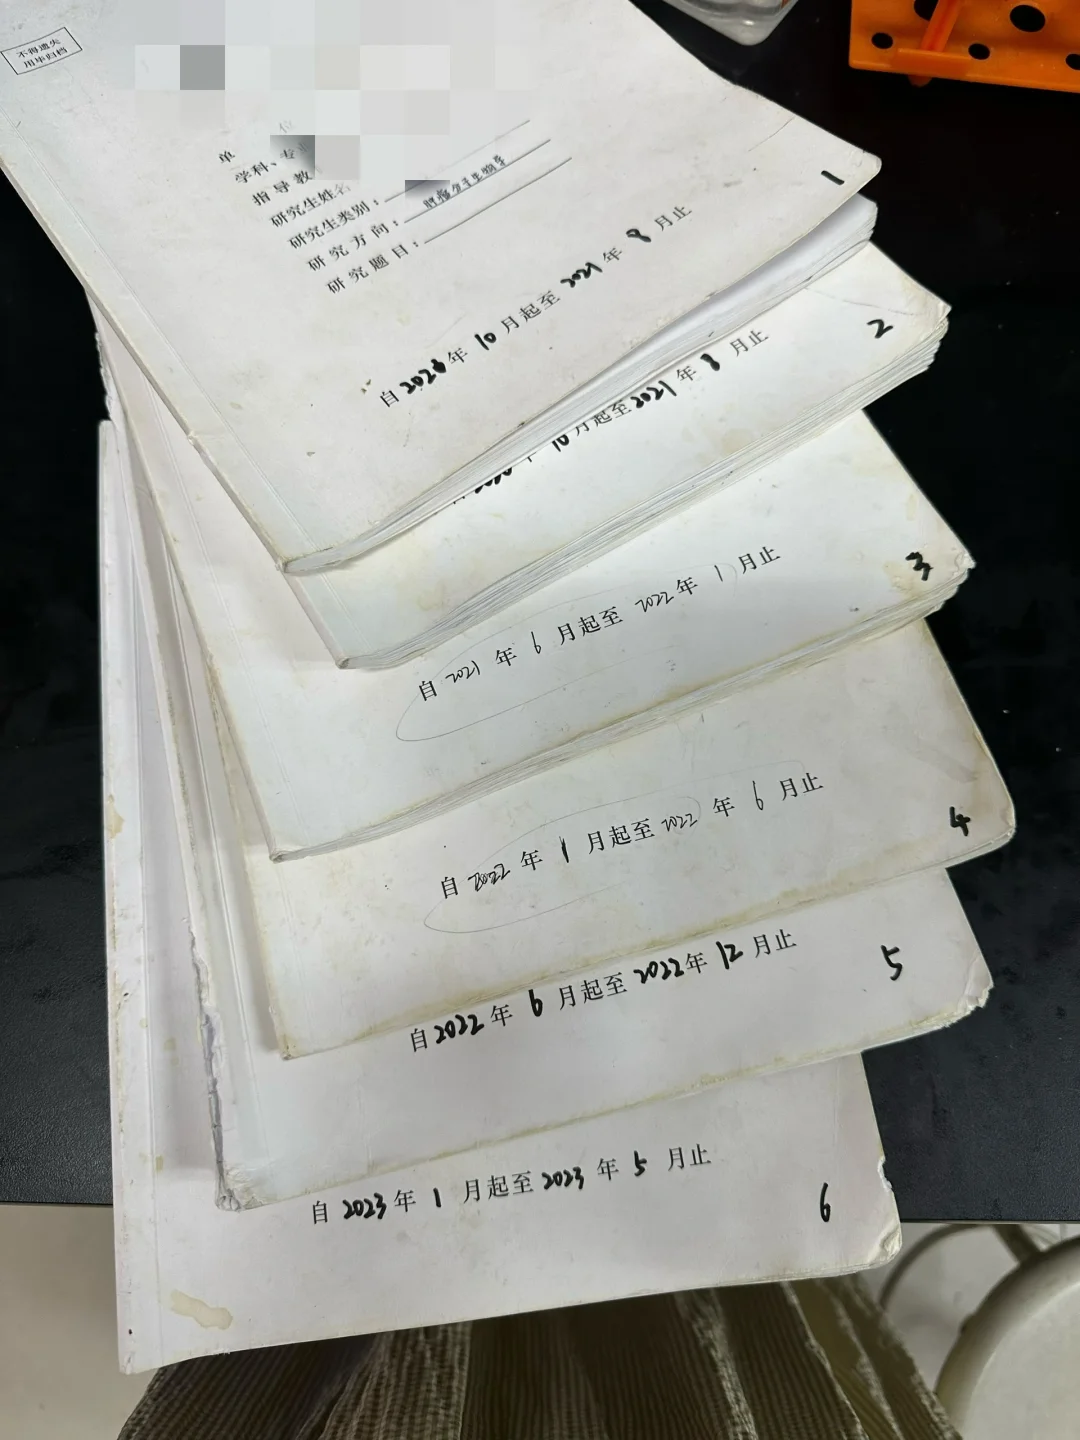 不得遗失
用毕归档
单 位
学科、专
指 导 教
研究生姓名
研究生类别：
研 究 方 向： 肿瘤分子生物学
研 究 题 目：
自2020年 10 月起至 2021 年 8 月止
1
10 月起至2021 年 8 月止
2
自 2021 年 6 月起至 2022年 1 月止
3
自 2022 年 1 月起至 2022 年 6 月止
4
自2022 年 6 月起至 2022年 12 月止
5
自 2023年 1 月起至 2023 年 5 月止
6